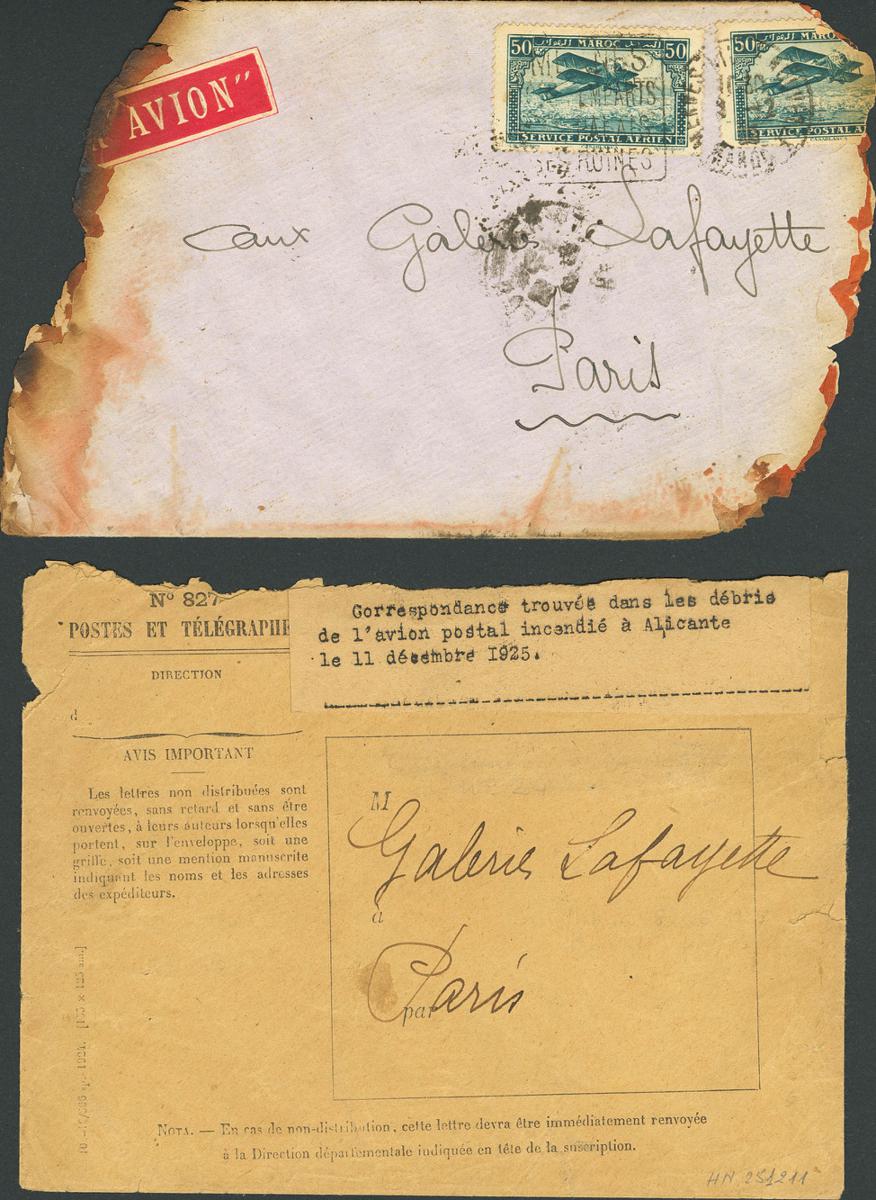 AVION"
50 MAROC 50
SERVICE POSTAL AÉRIEN
50 MAROC
SERVICE POSTAL A
RUINES
aux Galeries Lafayette
Paris
N° 827
POSTES ET TÉLÉGRAPHE
Correspondance trouvée dans les débris
de l'avion postal incendié à Alicante
le 11 décembre 1925.
DIRECTION
d
AVIS IMPORTANT
Les lettres non distribuées sont
renvoyées, sans retard et sans être
ouvertes, à leurs auteurs lorsqu'elles
portent, sur l'enveloppe, soit une
griffe, soit une mention manuscrite
indiquant les noms et les adresses
des expéditeurs.
M
Galeries Lafayette
à
Paris
par
NOTA. — En cas de non-distribution, cette lettre devra être immédiatement renvoyée
à la Direction départementale indiquée en tête de la suscription.
HN 251211